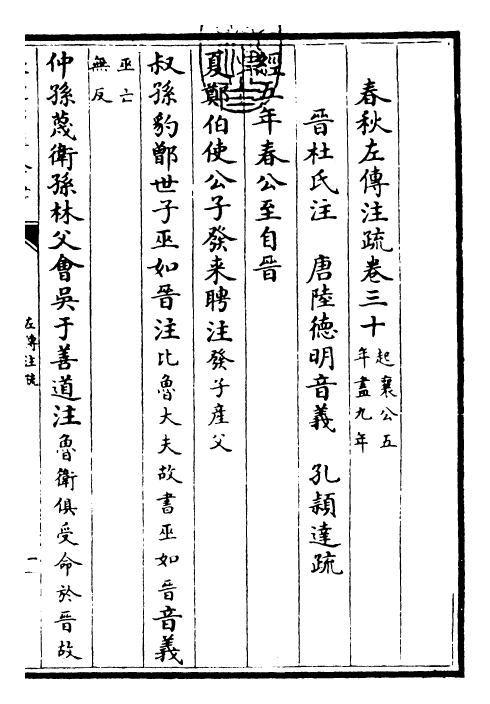 春秋左傳注疏卷三十起襄公五年盡九年
晉杜氏注　唐陸德明音義　孔穎達疏
經五年春公至自晉
夏鄭伯使公子發来聘注發子產父
叔孫豹鄫世子巫如晉注比魯大夫故書巫如晉音義
巫亡無反
仲孫蔑衛孫林父會吳于善道注魯衛俱受命於晉故
左傳注疏
一